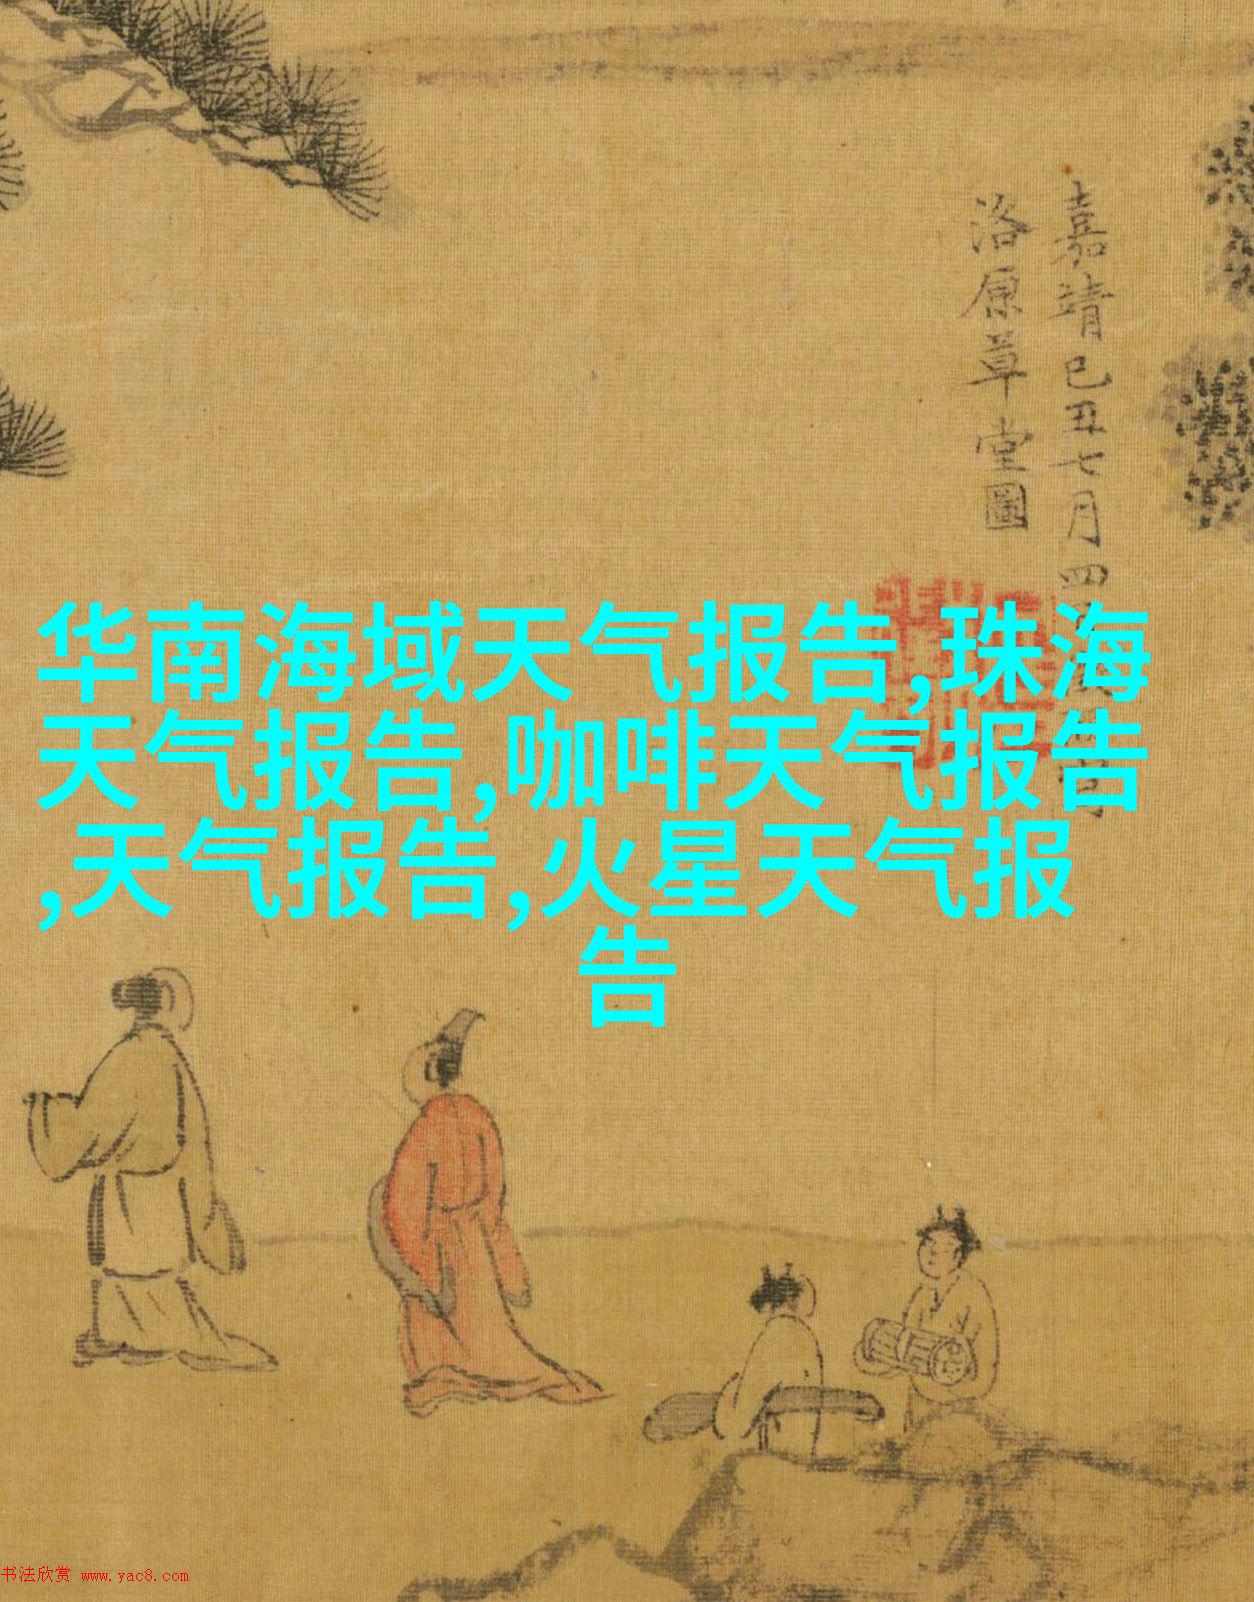 嘉靖己丑七月四
洛原草堂圖
华南海域天气报告,珠海
天气报告,咖啡天气报告
,天气报告,火星天气报
告
书法欣赏 www.yac8.com